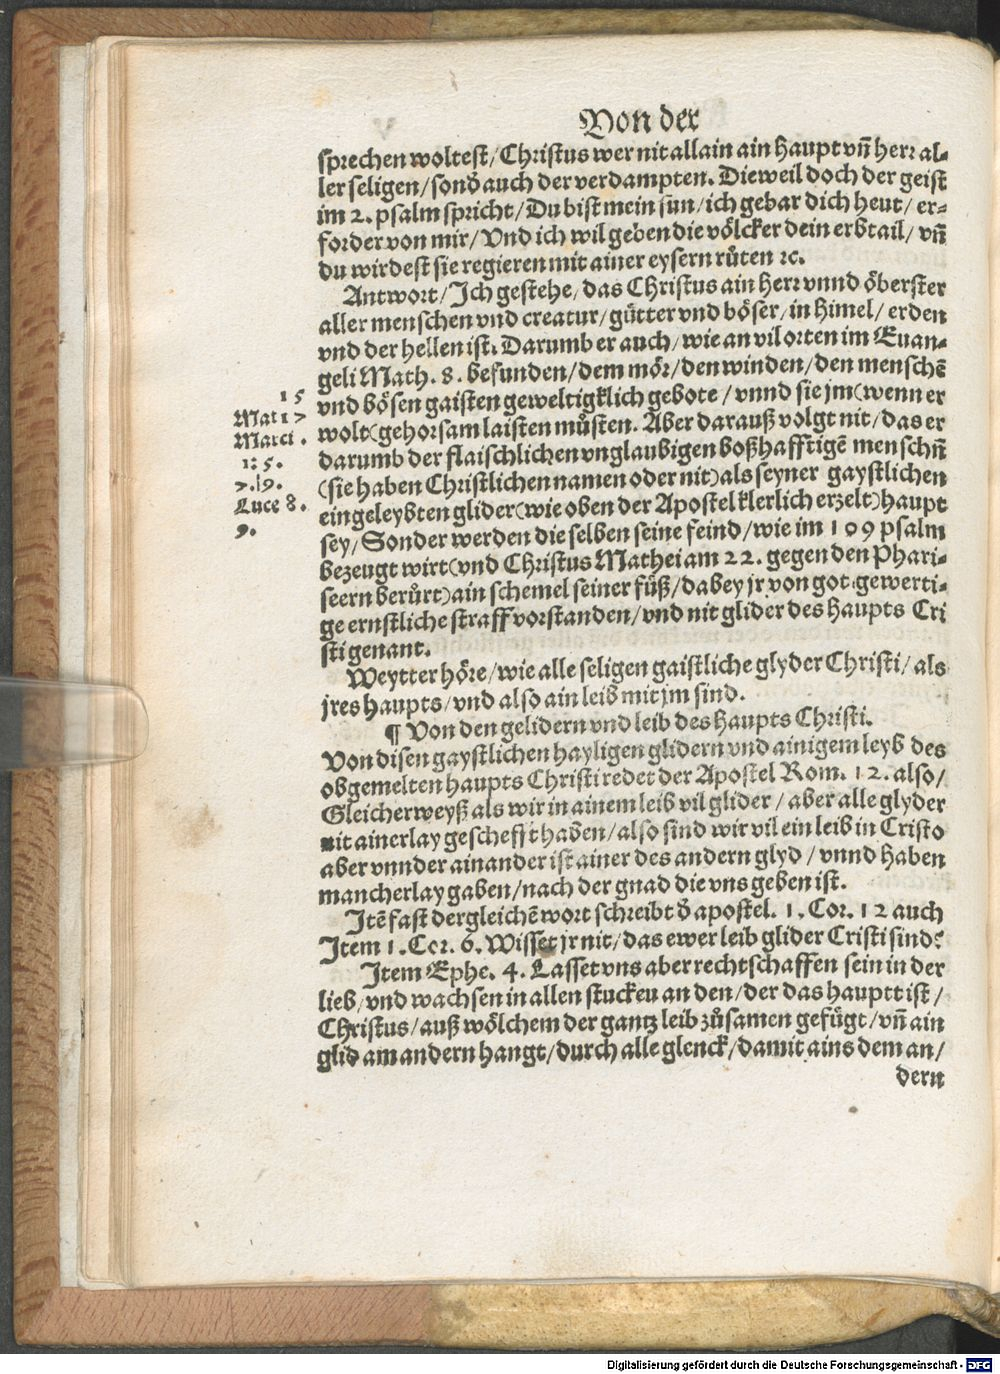 Von der
sprechen woltest/Christus wer nit allain ain haupt vñ herr al-
ler seligen/sonđ auch der verdampten. Dieweil doch der geist
im 2. psalm spricht/Du bist mein sun/ich gebar dich heut/er-
forder von mir/Vnd ich wil geben die völcker dein erbtail/vñ
du wirdest sie regieren mit ainer eysern růten ꝛc.
Antwort/Ich gestehe/das Christus ain herr vnnd öberster
aller menschen vnd creatur/gůtter vnd böser/in himel/erden
vnd der hellen ist. Darumb er auch/wie an vil orten im Euan-
geli Math. 8. befunden/dem mör/den winden/den menschē
vnd bösen gaisten geweltigklich gebote/vnnd sie jm(wenn er
wolt(gehorsam laisten můsten. Aber darauß volgt nit/das er
darumb der flaischlichen vnglaubigen boßhafftigē menschñ
(sie haben Christlichen namen oder nit)als seyner gaystlichen
eingeleybten glider(wie oben der Apostel klerlich erzelt)haupt
sey/Sonder werden die selben seine feind/wie im 109 psalm
bezeugt wirt(vnd Christus Mathei am 22. gegen den Phari-
seern berůrt)ain schemel seiner fůß/dabey jr von got gewerti-
ge ernstliche straff vorstanden/vnd nit glider des haupts Cri
sti genant.
Weytter höre/wie alle seligen gaistliche glyder Christi/als
jres haupts/vnd also ain leib mit jm sind.
¶ Von den gelidern vnd leib des haupts Christi.
Von disen gaystlichen hayligen glidern vnd ainigem leyb des
obgemelten haupts Christi redet der Apostel Rom. 12. also/
Gleicherweyß als wir in ainem leib vil glider/aber alle glyder
nit ainerlay gescheft haben/also sind wir vil ein leib in Cristo
aber vnnder ainander ist ainer des andern glyd/vnnd haben
mancherlay gaben/nach der gnad die vns geben ist.
Itē fast dergleichē wort schreibt đ apostel. 1. Cor. 12 auch
Item 1. Cor. 6. Wisset jr nit/das ewer leib glider Cristi sind?
Item Ephe. 4. Lasset vns aber rechtschaffen sein in der
lieb/vnd wachsen in allen stucken an den/der das hauptt ist/
Christus/auß wölchem der gantz leib zůsamen gefůgt/vñ ain
glid am andern hangt/durch alle glenck/damit ains dem an/
dern
15
Mat 1 >
Marci .
1: 5.
>.19.
Luce 8.
9.
Digitalisierung gefördert durch die Deutsche Forschungsgemeinschaft - DFG